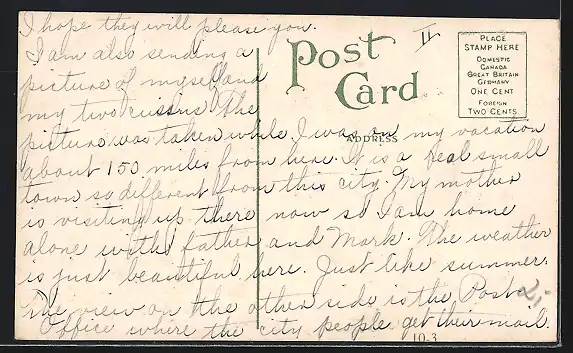 I hope they will please you.
I am also sending a
picture of myself and
my two cussins. The
picture was taken while I was on my vacation
about 150 miles from here. It is a real small
town so different from this city. My mother
is visiting up there now so I am home
alone with father and Mark. The weather
is just beautiful here. Just like summer.
The view on the other side is the Post
Office where the city people get their mail.
II
Post
Card
ADDRESS
PLACE
STAMP HERE
DOMESTIC
CANADA
GREAT BRITAIN
GERMANY
ONE CENT
FOREIGN
TWO CENTS
10-3